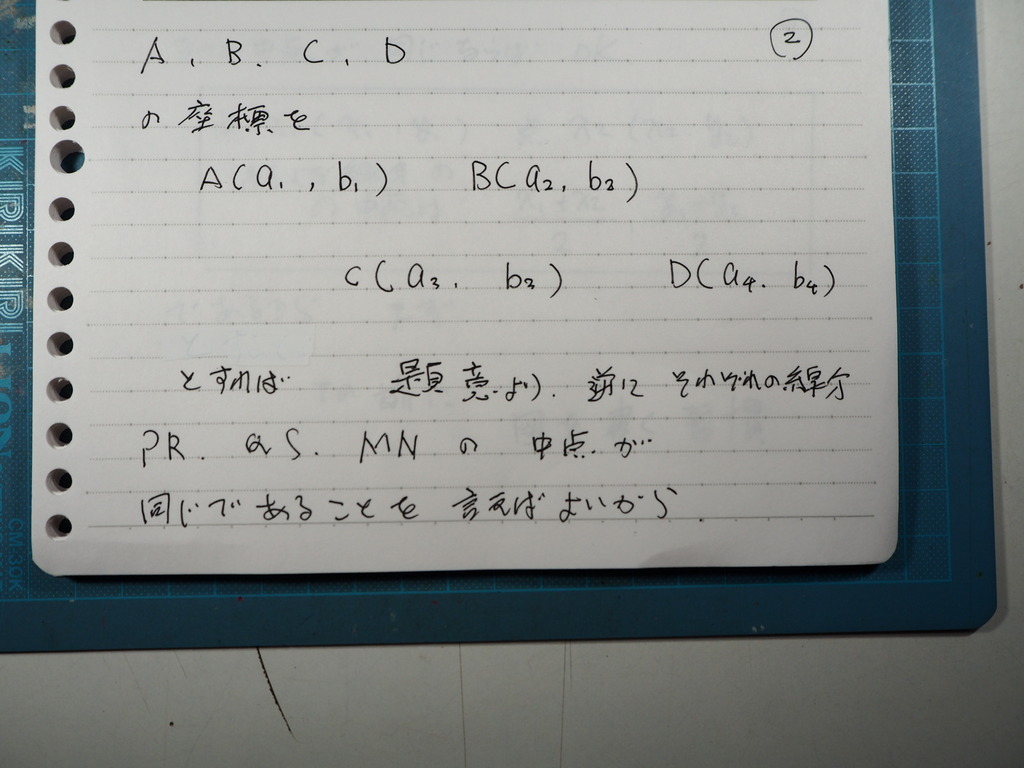 ②
A, B, C, D
の座標を
A(a₁, b₁) B(a₂, b₂)
C(a₃, b₃) D(a₄, b₄)
とすれば 題意より. 逆に それぞれの線分
PR. QS. MN の 中点が
同じであることを 言えばよいから.